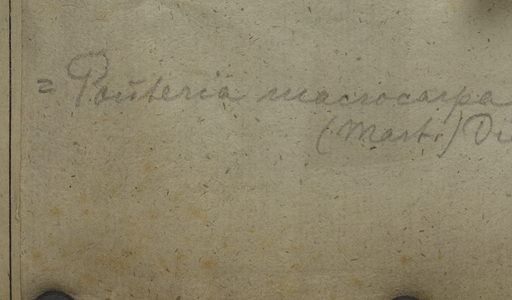 = Pouteria macrocarpa
(Mart.) Di